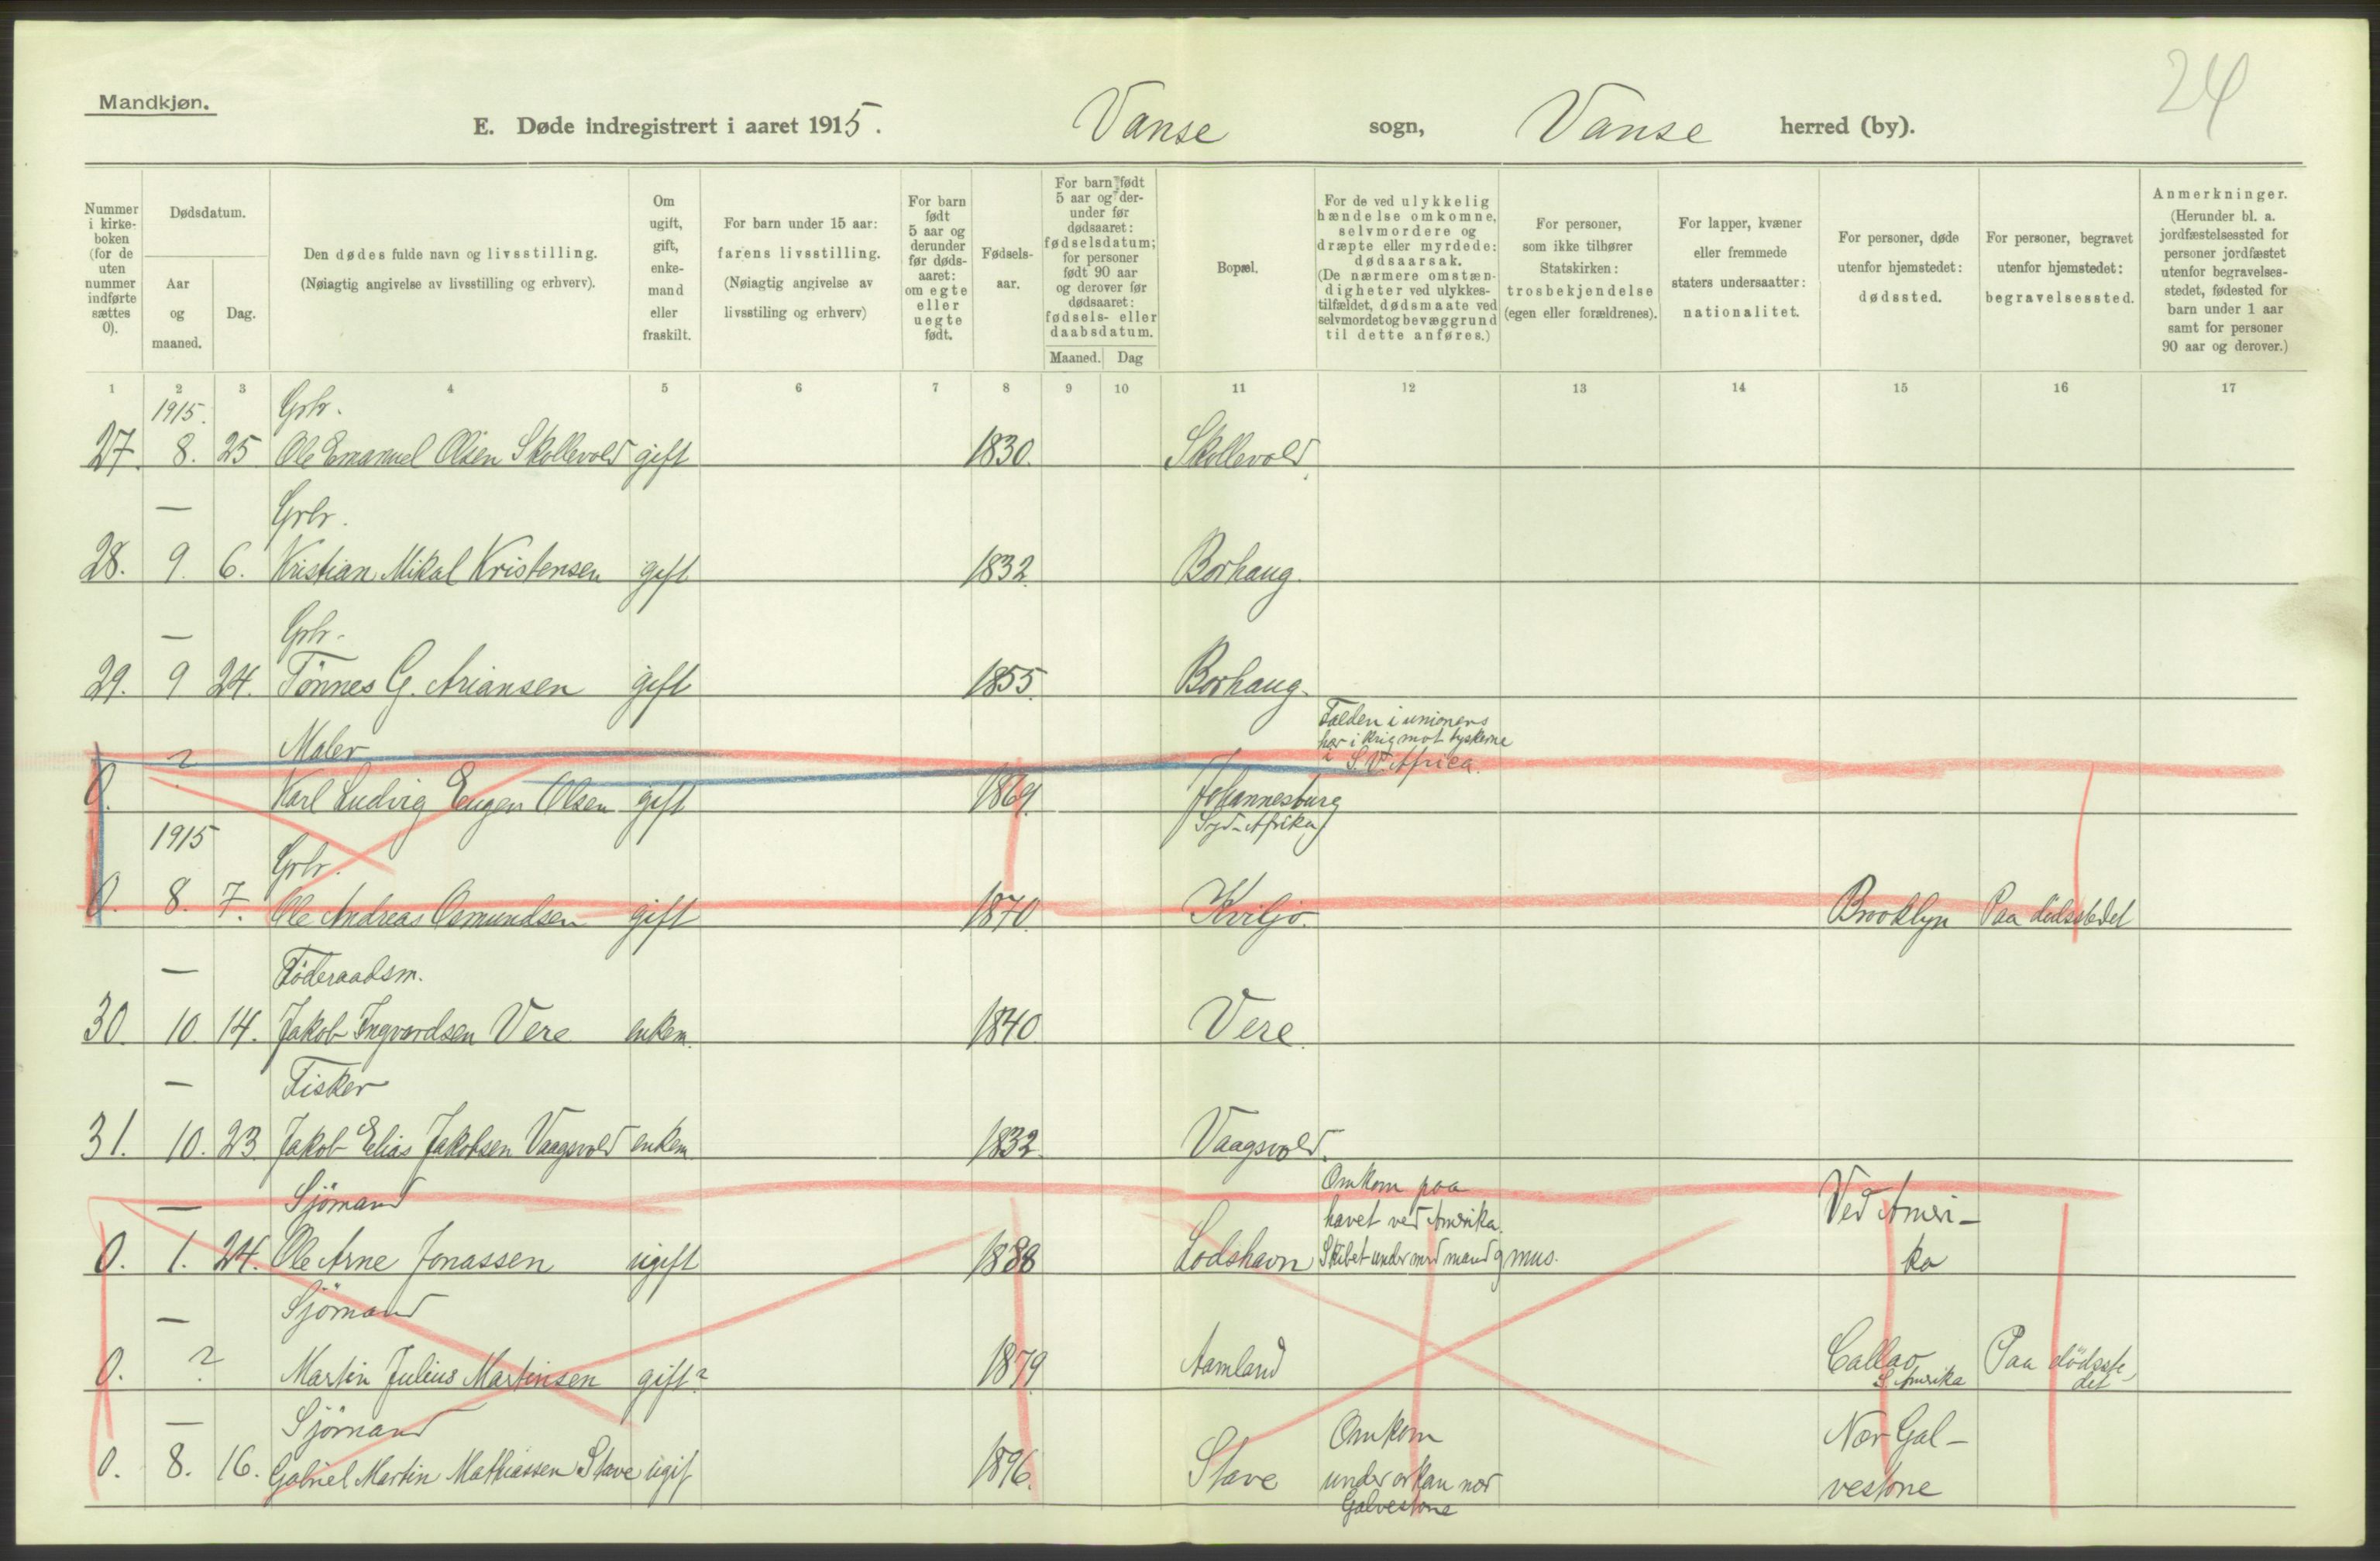 24
Mandkjøn.
E. Døde indregistrert i aaret 1915. Vanse sogn, Vanse herred (by).
Nummer i kirke-boken (for de uten nummer indførte sættes 0).
Dødsdatum.
Aar og maaned.
Dag.
Den dødes fulde navn og livsstilling.
(Nøiagtig angivelse av livsstilling og erhverv).
Om ugift, gift, enke-mand eller fraskilt.
For barn under 15 aar: farens livsstilling.
(Nøiagtig angivelse av livsstiling og erhverv)
For barn født 5 aar og derunder før døds-aaret: om egte eller uegte født.
Fødsels-aar.
For barn født 5 aar og der-under før dødsaaret: fødselsdatum; for personer født 90 aar og derover før dødsaaret: fødsels- eller daabsdatum.
Maaned. Dag
Bopæl.
For de ved ulykkelig hændelse omkomne, selvmordere og dræpte eller myrdede: dødsaarsak.
(De nærmere omstæn-digheter ved ulykkes-tilfældet, dødsmaate ved selvmordet og bevæggrund til dette anføres.)
For personer, som ikke tilhører Statskirken: trosbekjendelse (egen eller forældrenes).
For lapper, kvæner eller fremmede staters undersaatter: nationalitet.
For personer, døde utenfor hjemstedet: dødssted.
For personer, begravet utenfor hjemstedet: begravelsessted.
Anmerkninger.
(Herunder bl. a. jordfæstelsessted for personer jordfæstet utenfor begravelses-stedet, fødested for barn under 1 aar samt for personer 90 aar og derover.)
1 2 3 4 5 6 7 8 9 10 11 12 13 14 15 16 17
1915. Grbr.
27. 8. 25 Ole Emanuel Olsen Skollevold gift 1830. Skollevold
— Grbr.
28. 9. 6. Kristian Mikal Kristensen gift 1832. Borhaug.
— Grbr.
29. 9 24. Tønnes G. Ariansen gift 1855. Borhaug.
? Maler Falden i unionens
hær i krig mot tyskerne
i S. V. Africa.
0. Karl Ludvig Eugen Olsen gift 1869. Johannesburg
Syd-Afrika
1915 Grbr.
0. 8. 7. Ole Andreas Osmundsen gift 1870. Kviljo. Brooklyn Paa dødsstedet
— Föderaadsm.
30. 10. 14. Jakob Ingvardsen Vere enkem. 1840. Vere.
— Fisker
31. 10. 23. Jakob Elias Jakobsen Vaagsvold enkem. 1832. Vaagsvold.
— Sjömand Omkom paa
havet ved Amerika. Ved Ameri-
0. 1. 24. Ole Arne Jonassen ugift 1888 Lodshavn Skibet under med mand g mus. ka
— Sjömand
0. ? Martin Julius Martinsen gift? 1879 Aamland Callao Paa dödsste-
S. Amerika det
— Sjömand Omkom Nær Gal-
0. 8. 16. Gabriel Martin Mathiassen Stave ugif 1896. Stave under orkan nær vestone
Galvestone